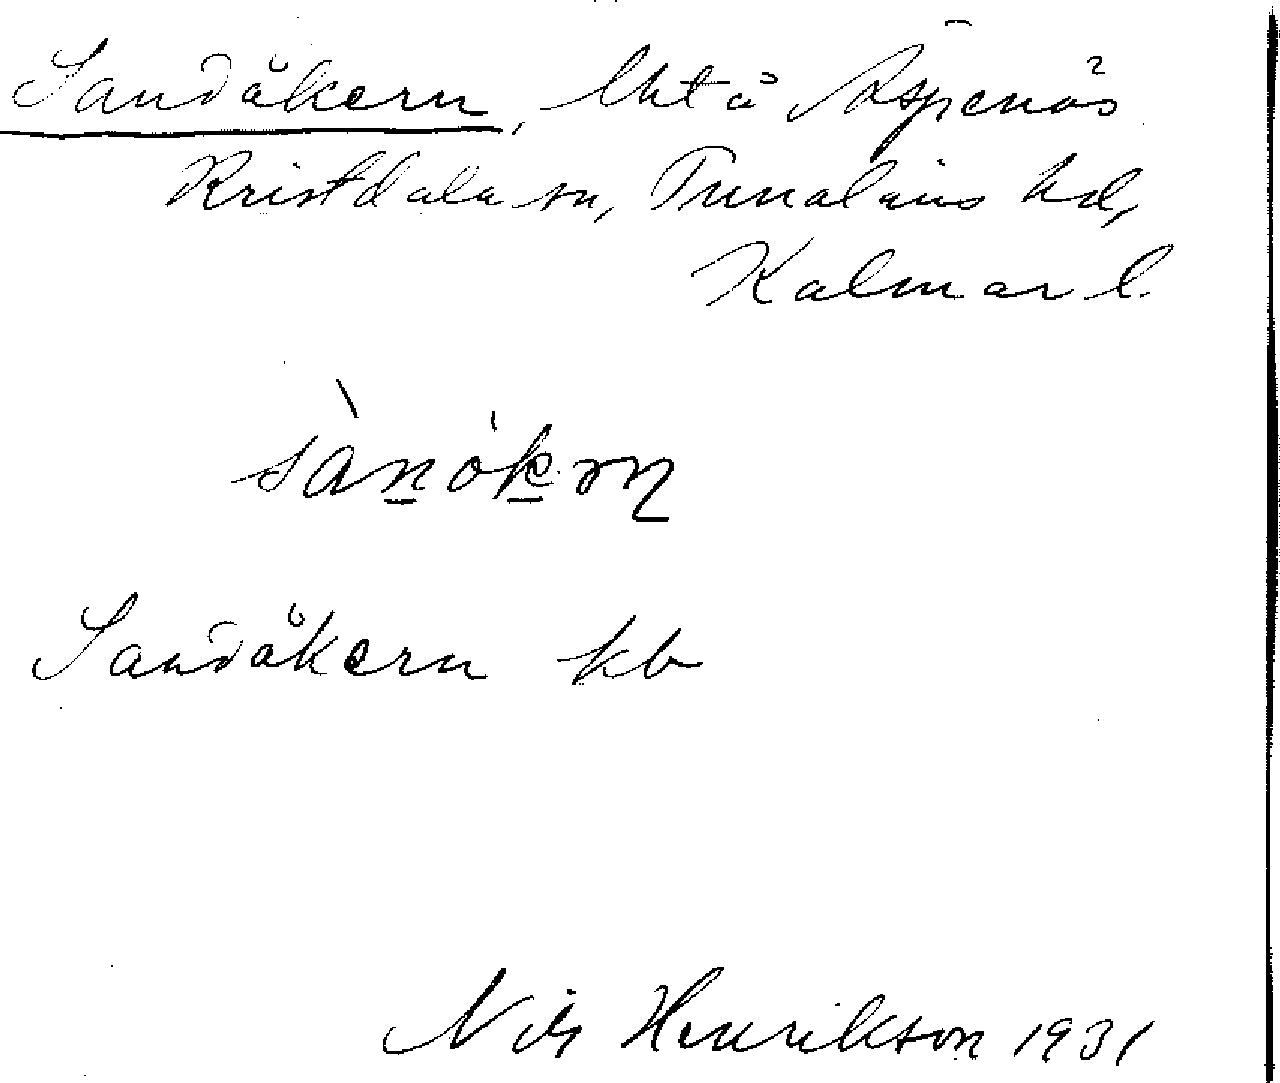 Sandåkern, lht å Äspenäs
Kristdala sn, Tunaläns hd,
Kalmar l.
sànòkɘrn
Sandåkern kb
Nils Henrikson 1931